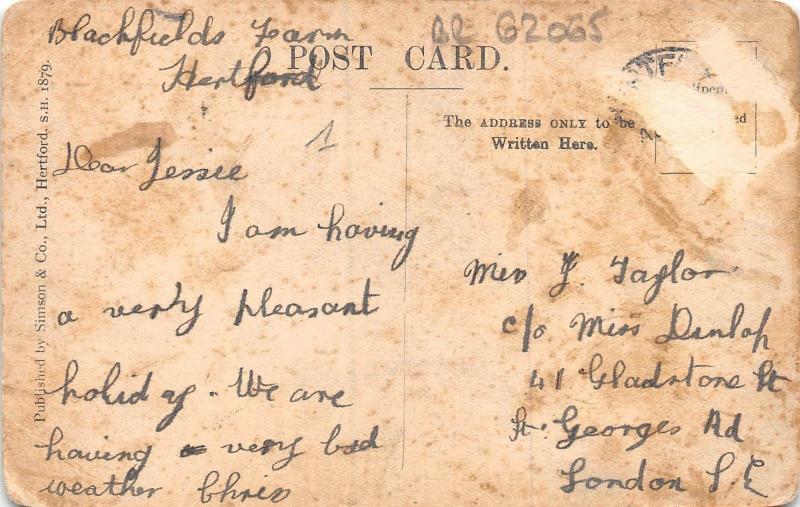 Blackfields Farm
Hertford
BR 62065
POST CARD.
The ADDRESS ONLY to be
Written Here.
Published by Simson & Co., Ltd., Hertford. S.H. 1879.
1
Dear Jessie
I am having
a very pleasant
holiday. We are
having a very bad
weather Chris
Miss J. Taylor
c/o Miss Dunlop
41 Gladstone St
St. Georges Rd
London S.E